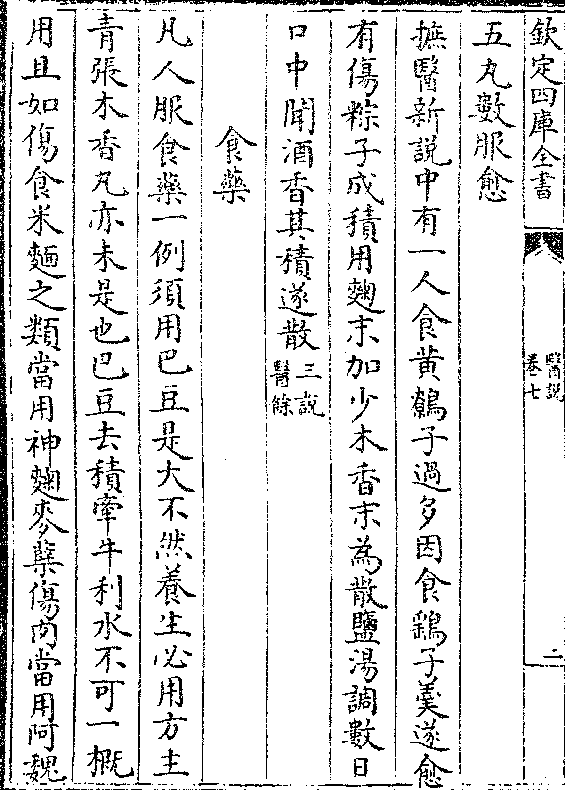 欽定四庫全書
醫說
卷七
二
五丸數服愈
撫醫新説中有一人食黄鷧子過多因食鷄子羮遂愈
有傷粽子成積用麴末加少木香末為散鹽湯調數日
口中聞酒香其積遂散三説
醫餘
食藥
凡人服食藥一例須用巴豆是大不然養生必用方主
青張木香丸亦未是也巴豆去積牽牛利水不可一概
用且如傷食米麵之類當用神麴麥蘖傷肉當用阿魏